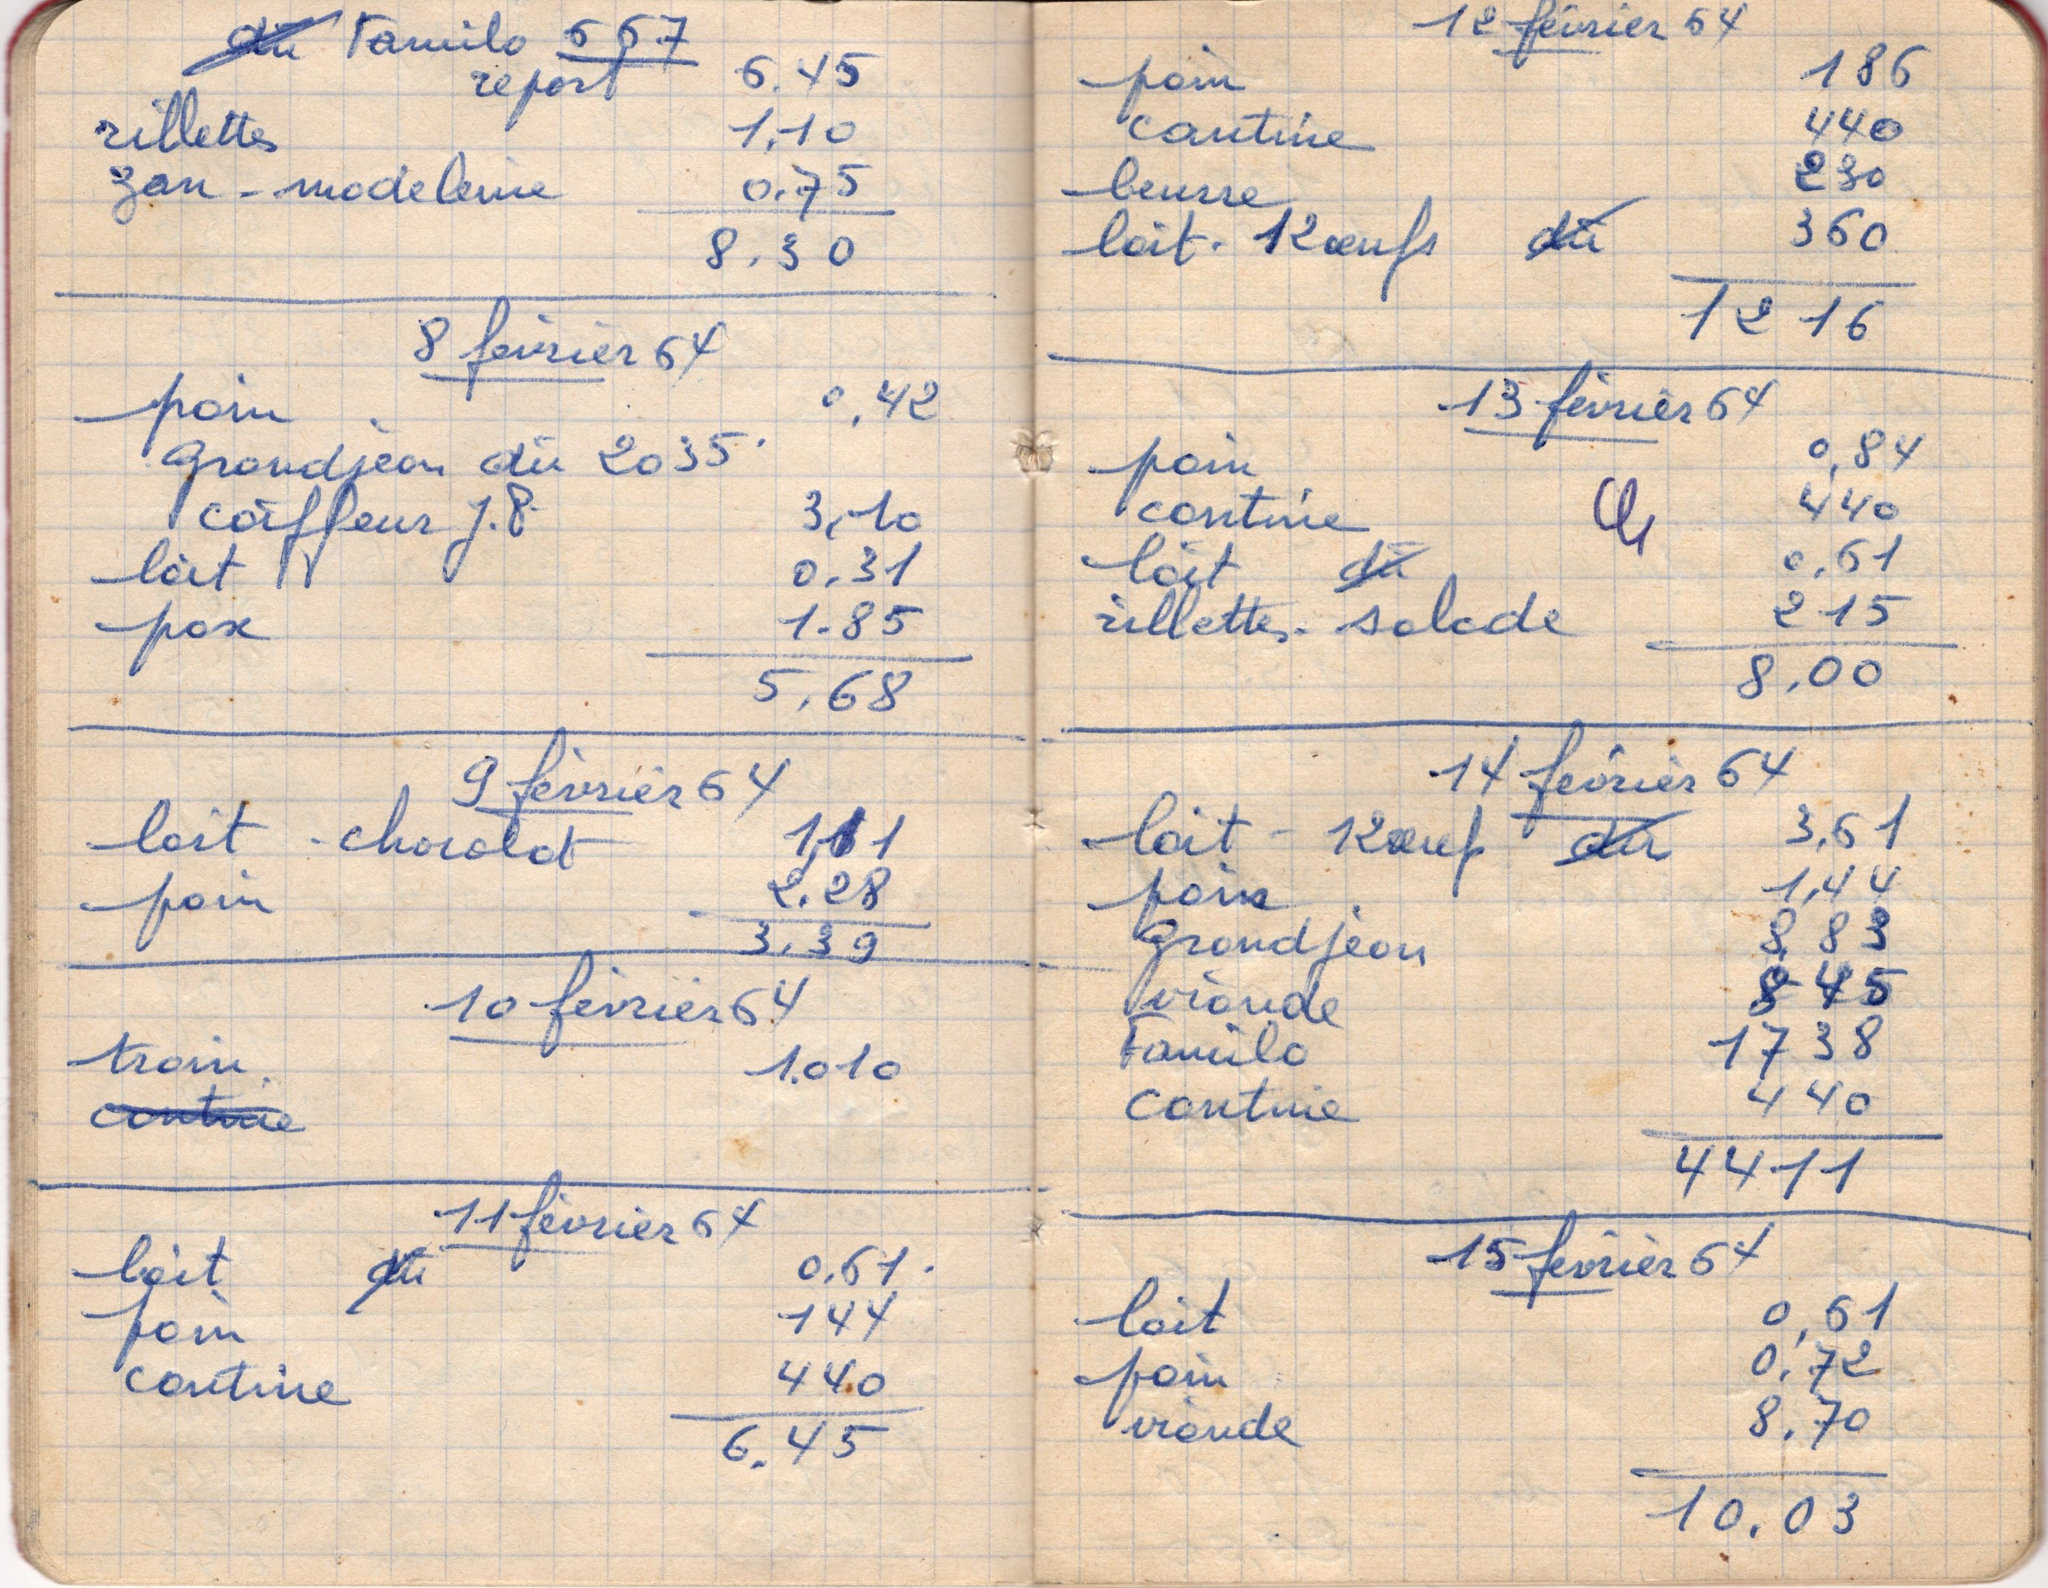 dû Familo 667
report 6.45
rillettes 1,10
zan - madeleine 0.75
8.30
8 février 64
pain 0,42
Grandjean dû 2035
coiffeur J.P. 3,10
lait 0.31
pax 1.85
5,68
9 février 64
lait - chocolat 1,11
pain 2.28
3.39
10 février 64
train 1010
cantine
11 février 64
lait dû 0.61
pain 144
cantine 440
6.45
12 février 64
pain 186
cantine 440
beurre 230
lait. 12 œufs dû 360
1216
13 février 64
pain 0,84
cantine 440
lait dû 0,61
rillettes. salade 215
8,00
14 février 64
lait - 12 œuf dû 3,61
pain 1,44
Grandjean 8.83
viande 845
Familo 1738
cantine 440
4411
15 février 64
lait 0,61
pain 0,72
viande 8.70
10.03